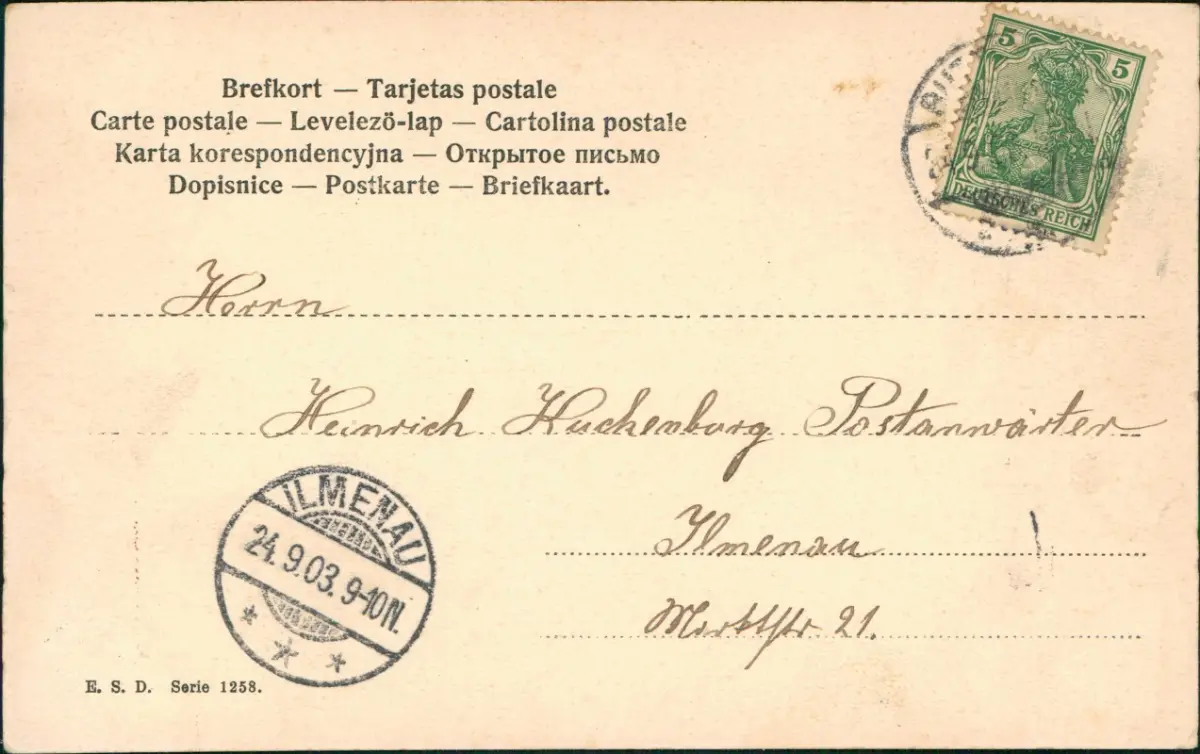 Brefkort — Tarjetas postale
Carte postale — Levelezö-lap — Cartolina postale
Karta korespondencyjna — Открытое письмо
Dopisnice — Postkarte — Briefkaart.
5 5
DEUTSCHES REICH
Herrn
Heinrich Kuchenburg Postanwärter
Ilmenau
Marktstr 21.
ILMENAU
24.9.03.9-10N.
E. S. D. Serie 1258.